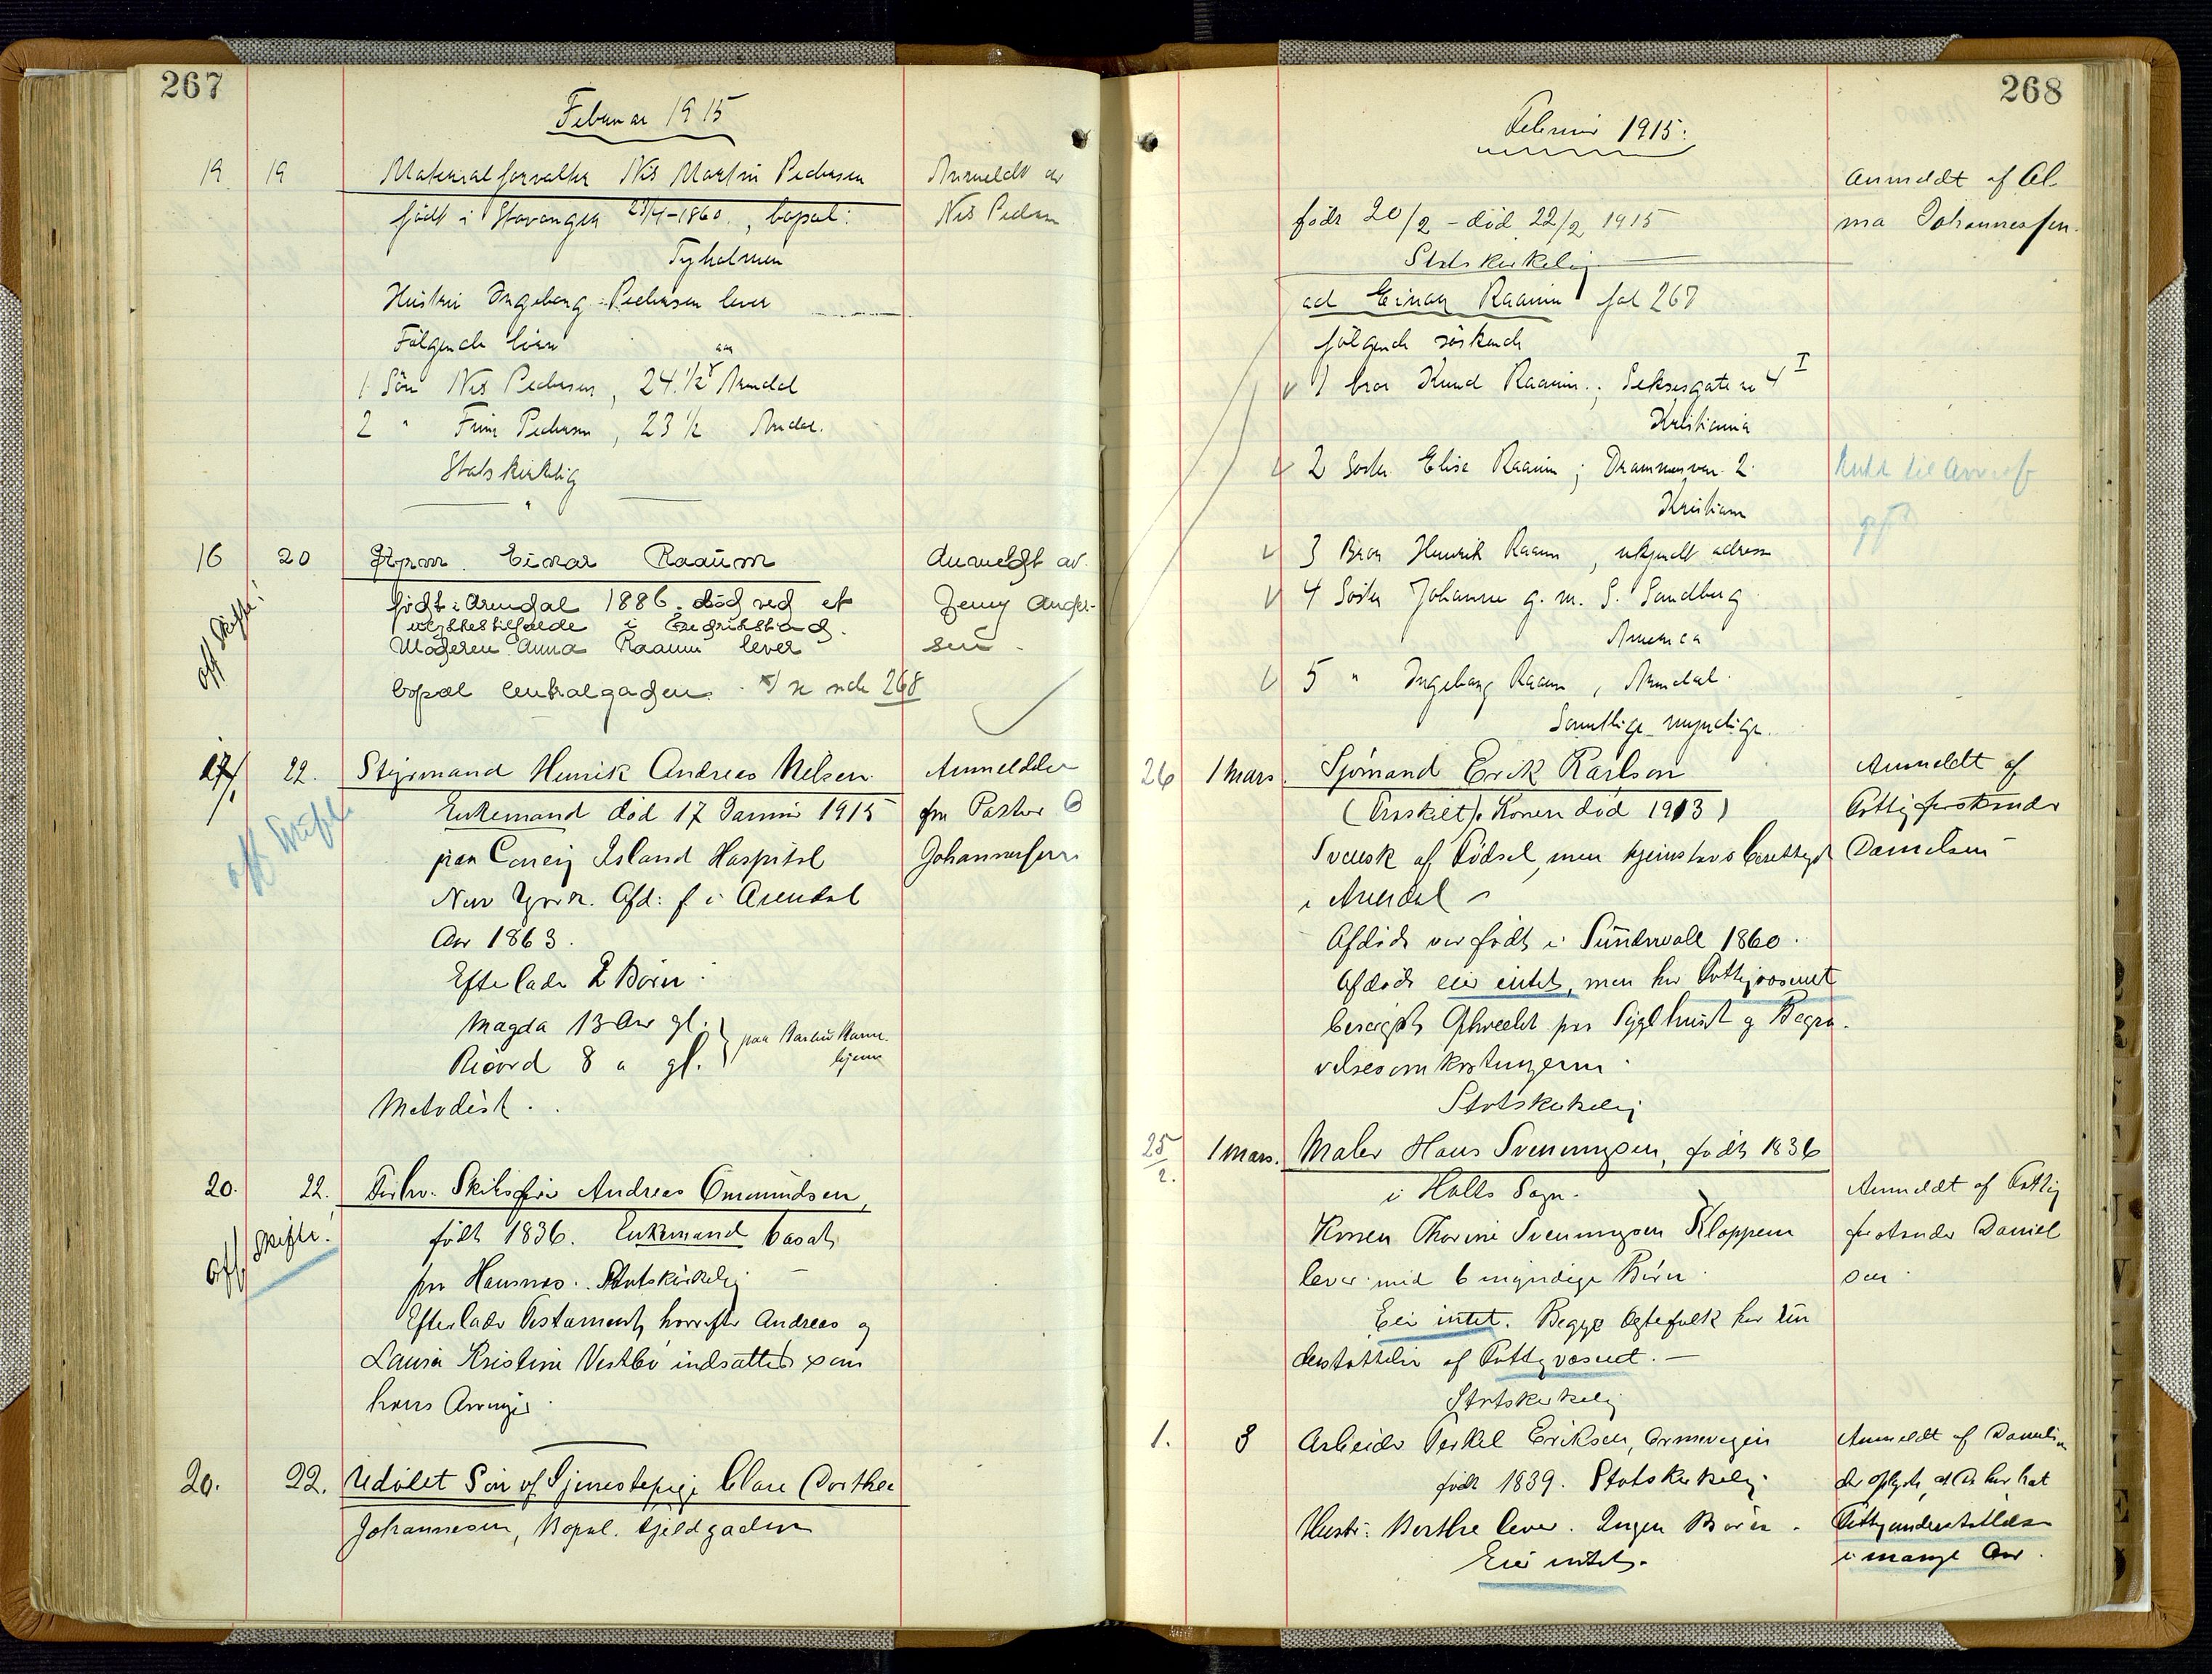 267
Februar 1915
19 19 Materialforvalter Nils Martin Pedersen Anmeldt av
født i Stavanger 23/4-1860., bopæl: Nils Pedersen
Tyholmen
Hustru Ingeborg Pedersen lever
Følgende børn
1. Søn Nils Pedersen, 24 1/2 aar Arendal
2 " Finn Pedersen, 23 1/2 Arendal.
Statskirkelig
16 20 Einar Raaum Anmeldt av
off Skifte!
født i Arendal 1886. død ved et Jenny Ander-
ulykkestilfælde i Fredrikstad. sen.
Moderen Anna Raaum lever
bopæl Centralgaden. se side 268
17/1 22. Styrmand Henrik Andreas Nilsen Anmeldelse
off Skifte
Enkemand død 17 Januar 1915 fra Pastor O
paa Coney Island Hospital Johannessen
New York. Afd: f. i Arendal
Aar 1863.
Efterlader 2 Børn:
Magda 13 Aar gl.
Ricard 8 " gl. paa Barbu Barne-
hjem
Metodist.
20. 22. Andreas Omundsen,
off Skifte!
født 1836. Enkemand bosat
paa Hausnes. Statskirkelig
Efterlader Testament, hvorefter Andreas og
Laura Kristine Vestbø indsættes som
hans Arvinger.
20. 22. Udøbt Søn af Tjenestepige Clara Dorthea
Johannesen, Bopæl. Gjeldgaden
268
Februar 1915.
Anmeldt af Al-
født 20/2 - død 22/2 1915 ma Johannessen.
Statskirkelig
ad Einar Raaum fol 267
følgende søskende
1 bror Knud Raaum; 4 I
Kristiania
2 Søster Elise Raaum; Drammensvn. 2.
Kristiania
3 Bror Henrik Raaum, ukjendt adresse
4 Søster Johanne g. m. S. Sandberg
Amerika
5 " Ingeborg Raaum, Arendal.
Samtlige myndige.
26 1 mars Sjømand Erik Karlson Anmeldt af
(Fraskilt). Konen død 1913) Fattigforstander
Svensk af Fødsel, men hjemstavnsberettiget Danielsen
i Arendal
Afdøde var født i Sundsvall 1860.
Afdøde eier intet, men har Fattigvæsenet
besørget Ophold paa Sygehuset og Begra-
velsesomkostningerne.
Statskirkelig
25/2. 1 mars. Maler Hans Svenningsen, født 1836
i Holts Sogn. Anmeldt af Fattig
Konen Thorine Svenningsen Kloppene forstander Daniel
lever med 6 myndige Børn. sen.
Eier intet. Begge Ægtefolk har un
derstøttelse af Fattigvæsenet.
Statskirkelig
1. 3 Arbeider Terkel Eriksen, Anmeldt af Danielsen
født 1839. Statskirkelig. der oplyste, at A. har hat
Hustru: Berthe lever. Ingen Børn. Fattigunderstøttelse
Eier intet. i mange Aar.